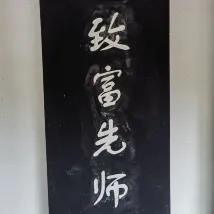 致富先师